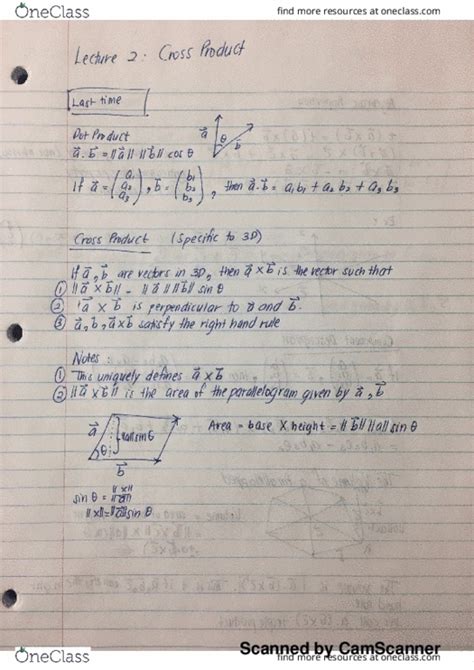 OneClass
find more resources at oneclass.com
Lecture 2: Cross Product
Last time
Dot Product
a⃗·b⃗ = ||a⃗|| ||b⃗|| cos θ
a⃗ θ b⃗
If a⃗ = (a₁ a₂ a₃), b⃗ = (b₁ b₂ b₃), then a⃗·b⃗ = a₁b₁ + a₂b₂ + a₃b₃
Cross Product (specific to 3D)
If a⃗, b⃗ are vectors in 3D, then a⃗ x b⃗ is the vector such that
① ||a⃗ x b⃗|| = ||a⃗|| ||b⃗|| sin θ
② a⃗ x b⃗ is perpendicular to a⃗ and b⃗.
③ a⃗, b⃗, a⃗ x b⃗ satisfy the right hand rule
Notes:
① This uniquely defines a⃗ x b⃗
② ||a⃗ x b⃗|| is the area of the parallelogram given by a⃗, b⃗
a⃗ θ ||a||sin θ b⃗
Area = base X height = ||b⃗|| ||a|| sin θ
sin θ = ||x|| / ||a⃗||
||x|| = ||a⃗|| sin θ
Scanned by CamScanner
OneClass
find more resources at oneclass.com